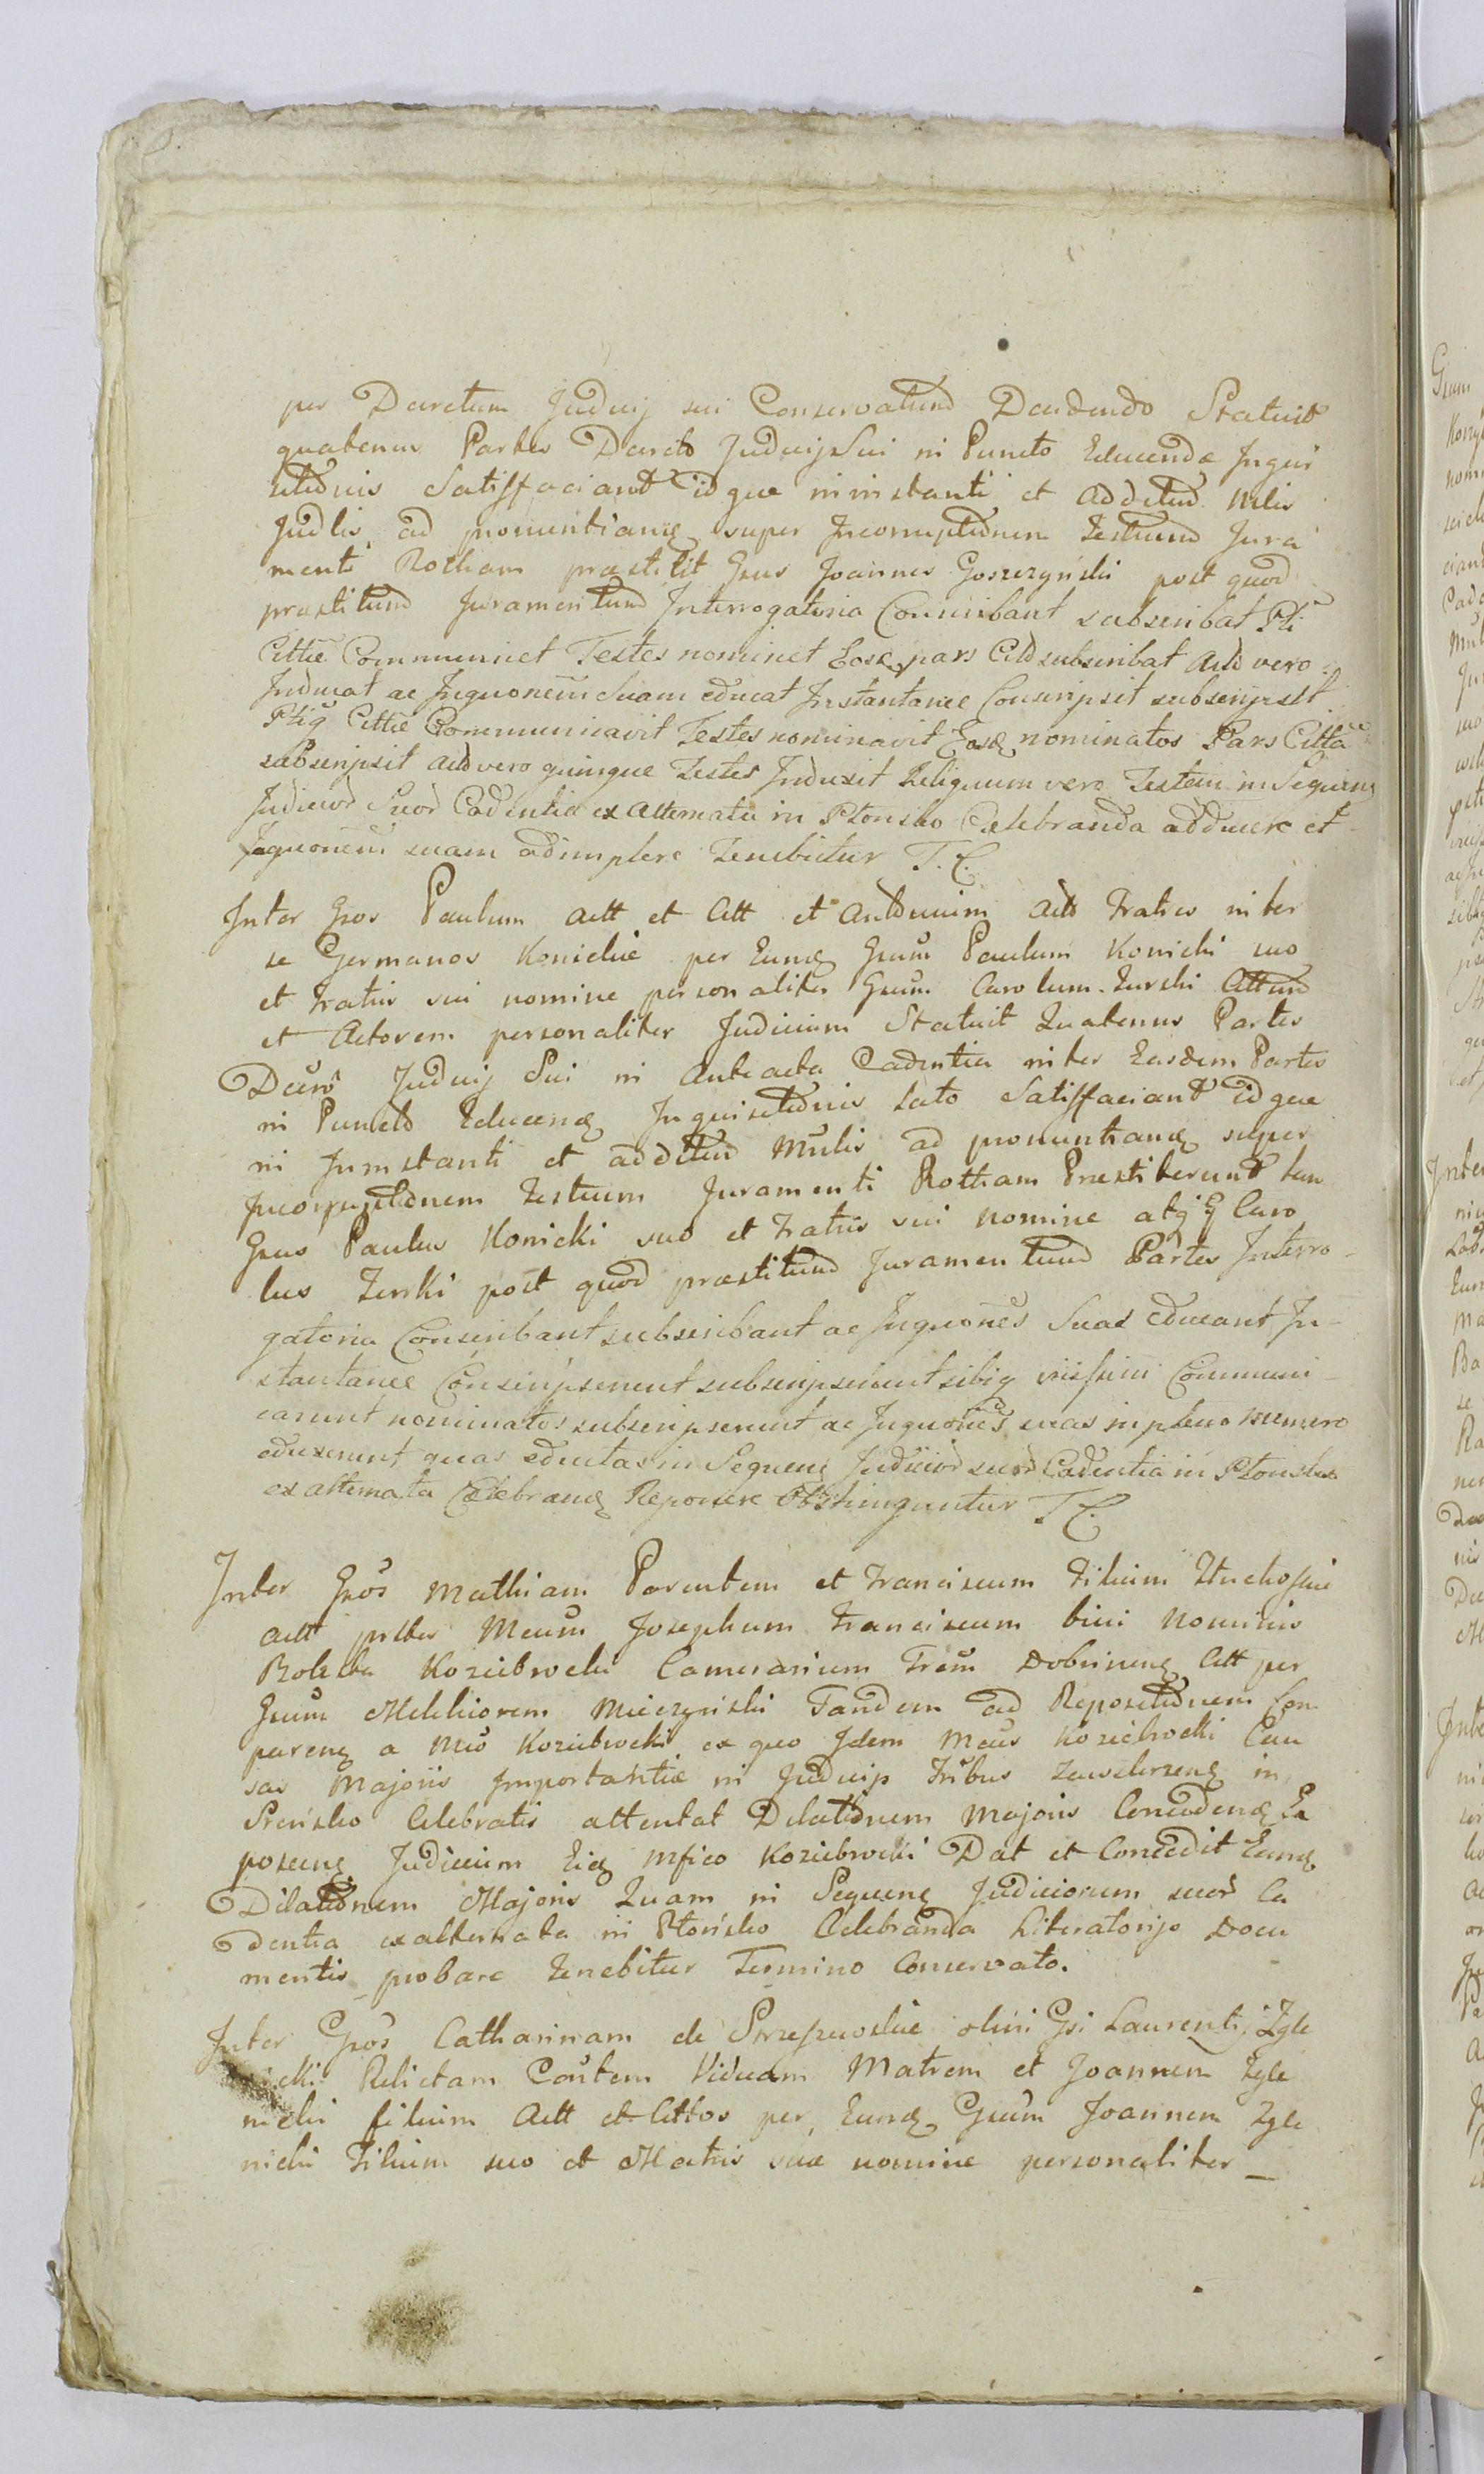 per Decretum Judicij sui Conservatum Decidendo Statuit
quatenus Partes Decreto Judicij Sui in Puncto Educendæ Inqui
sitionis Satisffaciant idque in instanti et additum Mtlis
Judlis ad pronuntianq super Incorruptionem Testium Jura
menti Rotham præstitit Gsus Joannes Goszczyński post quod
præstitum Juramentum Interrogatoria Conscribant subscribat Pti
Cittæ Communicet Testes nominet Eosq pars Citt subscribat Act vero
Inducat ac Inquonem Suam educat Instantanee Conscripsit subscripsit
Ptiq Cittæ Communicavit Testes nominavit Eosq nominatos Pars Citta
subscripsit Act vero quinque Testes Induxit Reliquum vero Testem in Sequenq
Judicior Suor Cadentia ex Alternata in Płonsko Celebranda adducere et
Inquonem suam adimplere Tenebitur T. C.
Inter Gsos Paulum Act et Citt et Antonium Act Fratres inter
se Germanos Konickie per Eunq Gsum Paulum Konicki suo
et Fratris sui nomine personaliter Gsum Carolum Turski Cittum
et Actorem personaliter Judicium Statuit Quatenus Partes
Decro Judicij Sui in Anteacta Cadentia inter Easdem Partes
in Puncto Educenq Inquisitionis Lato Satisffaciant idque
in Instanti et additum Mtlis ad pronuntianq super
Incorruptionem Testium Juramenti Rotham Præstiterunt tam
Gsus Paulus Konicki suo et Fratris sui nomine atq G Caro
lus Turski post quod præstitum Juramentum Partes Interro-
gatoria Conscribant subscribant ac Inquones Suas educant In-
stantanee Conscripserunt subscripserunt sibiq invicem Communi-
carunt nominatos subscripserunt ac Inquones suas in pleno numero
eduxerunt quas eductas in Sequenq Judicior suor Cadentia in Płonsko
ex alternata Celebranq Reponere Obstringuntur T C.
Inter Gsos Mathiam Parentem et Franciscum Filium
Act Mcum Josephum Franciscum bini Nominis
Kozicbrocki Camerarium Trem Dobrinenq Citt per
Gsum Melchiorem Mieczyński Tandem ad Repositionem Com
parenq a Mco Kozicbrocki ex quo Idem Mcus Kozicbrocki Cau
sas Majoris Importantiæ in Judicijs Tribus Zawskrzenq in
Sreńsko Celebratis attentat Dilationem Majoris Concedenq Ex
poscenq Judicium Eiq Mfico Kozicbrocki Dat et Concedit Eanq
Dilationem Majoris Quam in Sequenq Judiciorum suor Ca
dentia ex alternata in Płońsko Celebranda Literatorijs Docu
mentis probare Tenebitur Termino Conservato.
Inter Gsos Catharinam de olim Gsi Laurentij Zgle
nicki Relictam Contem Viduam Matrem et Joannem Zgle
nicki filium Act et Cittos per Eunq Gsum Joannem Zgle
nicki Filium suo et Matris suæ nomine personaliter _